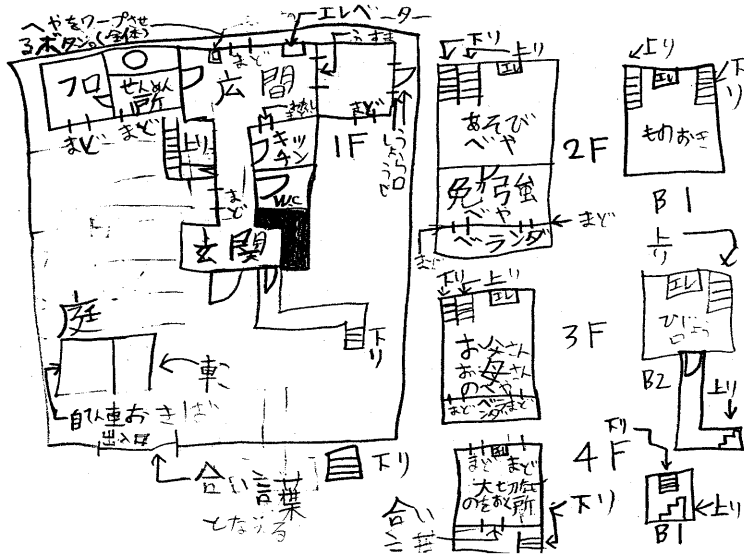 へやをワープさせ
るボタン。(全体)
エレベーター
フロ
せんめん
所
広間
まど
ふすま
まど
まど
まど
上り
キッ
チン
1F
うら口
W.C
まど
玄関
庭
下り
車
自てん車おきば
出入口
合い言葉
となえる
下り
下り
上り
エレ
あそび
べや
2F
勉強
べや
ベランダ
まど
まど
下り
上り
エレ
お父さん
お母さん
のへや
まど
ベランダ
まど
3F
まど
まど
大切な
のをおく所
4F
下り
合い
言葉
上り
エレ
下り
ものおき
B1
上り
エレ
ひじょう
口
B2
上り
下り
上り
B1